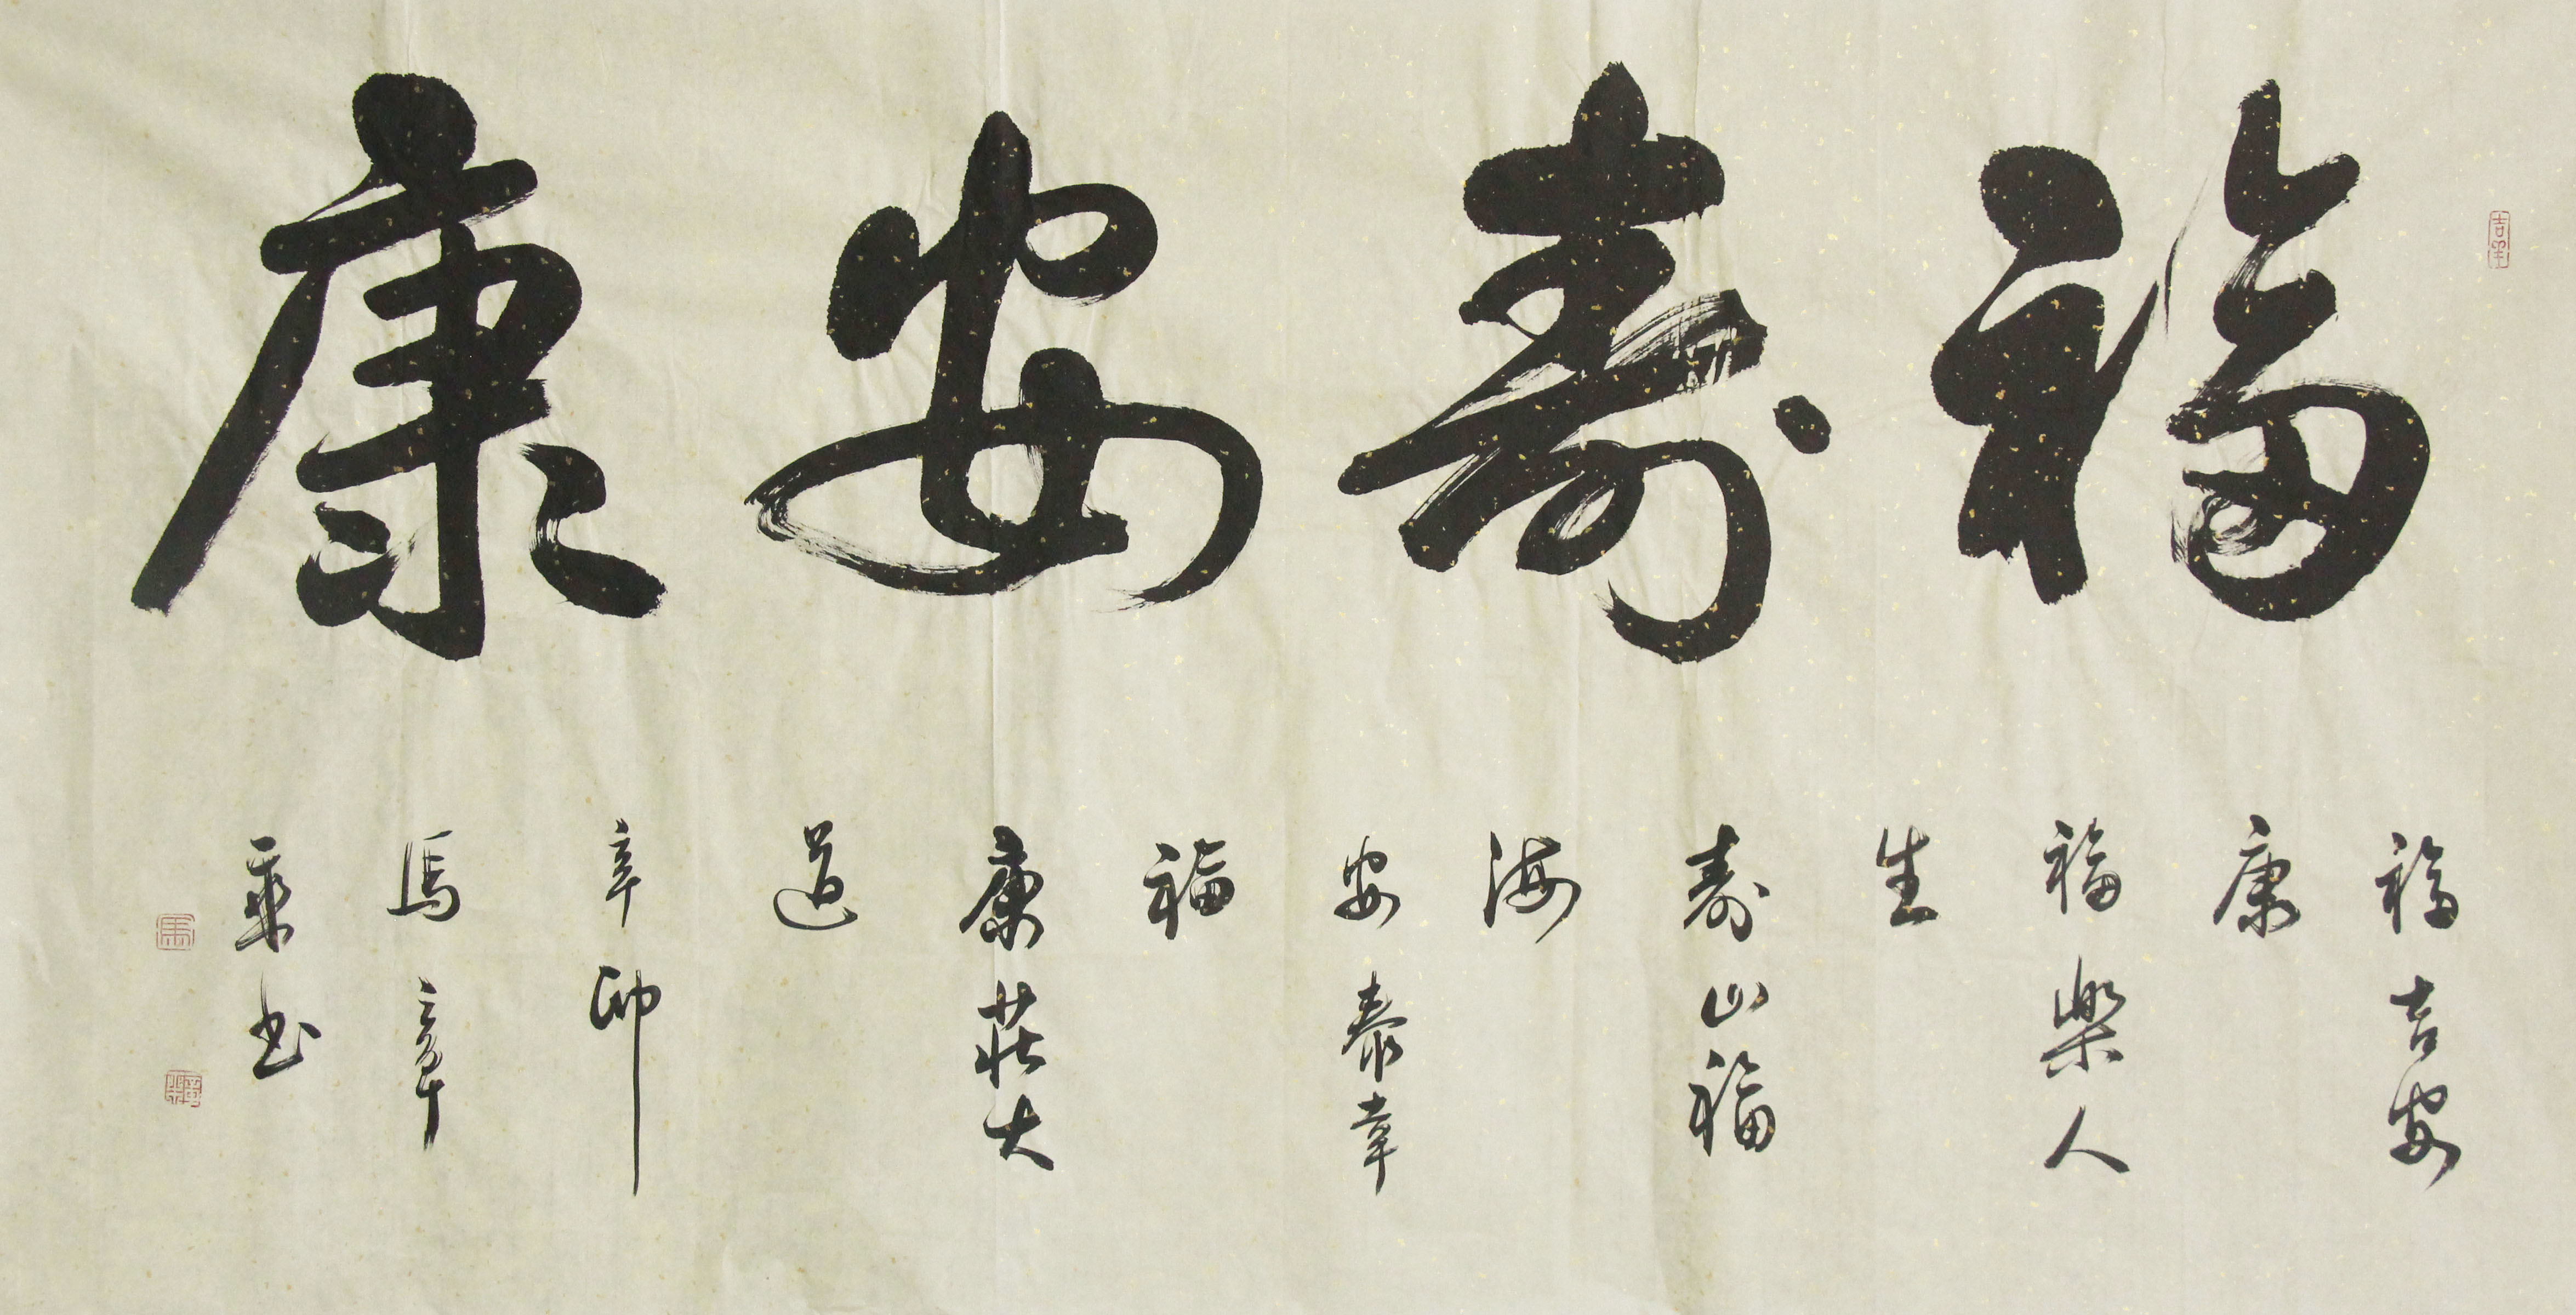 福壽安康
福吉安
康
福樂人
生
壽山福
海
安泰幸
福
康莊大
道
辛卯
馬章
乘书
吉羊
馬